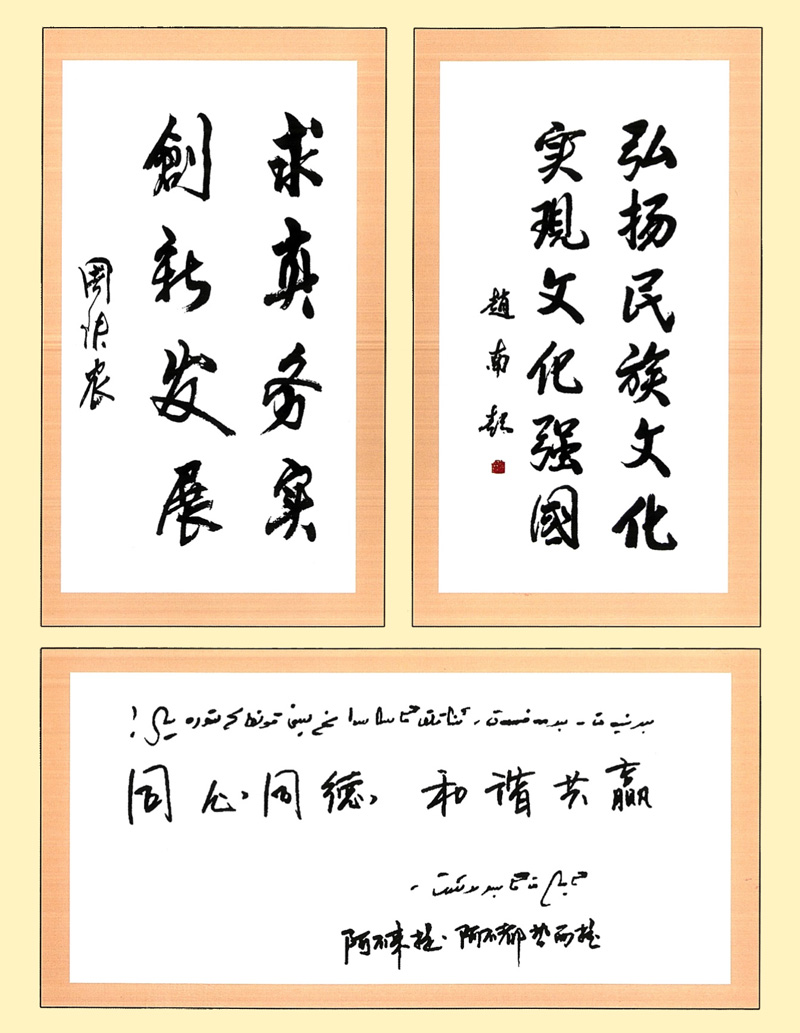 求真务实
創新发展
周铁农
弘扬民族文化
实現文化强國
趙南起
同心同德，和谐共赢
阿不来提·阿不都热西提